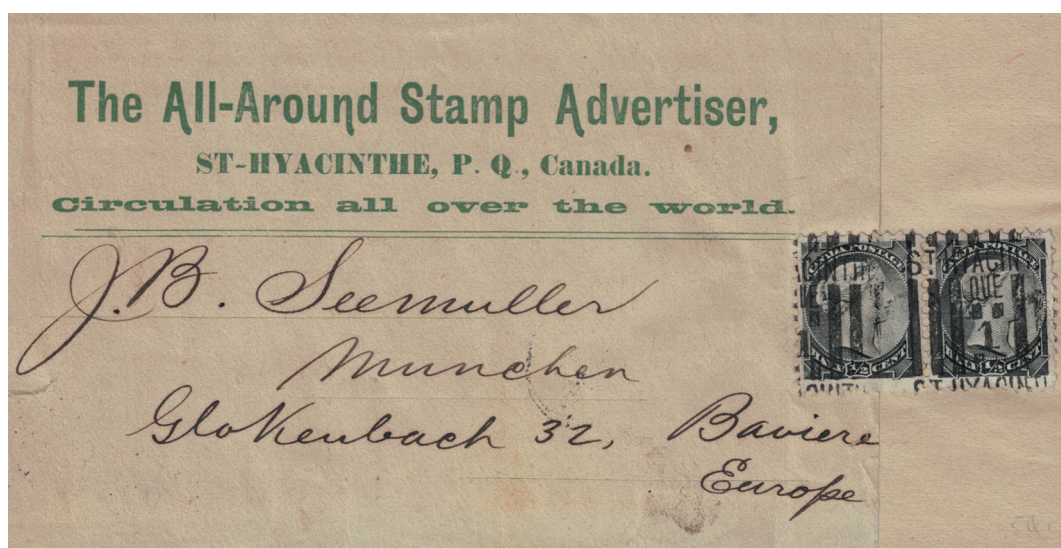 The All-Around Stamp Advertiser,
ST-HYACINTHE, P. Q., Canada.
Circulation all over the world.
J. B. Seemuller
Munchen
Glokenbach 32, Baviere
Europe
ST HYACIN
QUE
1
CANADA POSTAGE
HALF ½ CENT
ST HYACINTH